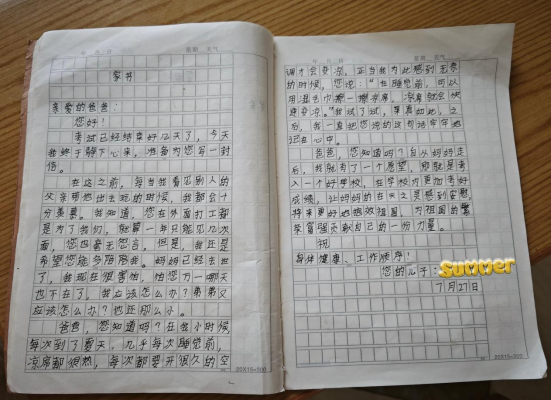 家书
亲爱的爸爸：
您好！
考试已经结束好几天了，今天
我终于静下心来，准备为您写一封
信。
在这之前，每当我看见别人的
父亲带他出去玩的时候，我都会十
分羡慕。我知道，您在外面打工都
是为了我们，就算一年只能见几次
面，您也毫无怨言，但是，我还是
希望您能多陪陪我。妈妈已经去世
了，我现在很害怕，怕您万一哪天
也不在了，我应该怎么办？弟弟又
应该怎么办？他还那么小。
爸爸，您知道吗？在我小时候
每次到了夏天，几乎每次睡觉前，
凉席都很热，每次都要开很久的空
调才会变凉。正当我为此感到无奈
的时候，您说：“在睡觉前，可以
用湿毛巾擦一擦凉席，凉席就会快
速变凉。”我试了试，果真如此。之
后，我一直把您说的这句话牢牢地
记在心中。
爸爸，您知道吗？自从妈妈走
后，我就有了一个愿望，那就是考
入一个好学校，在学校内更加考好
成绩，让妈妈的在天之灵感到安慰，
将来更好地报效祖国，为祖国的繁
荣富强贡献自己的一份力量。
祝
身体健康、工作顺利！
您的儿子：summer
7月27日
20X15=300
20X15=300